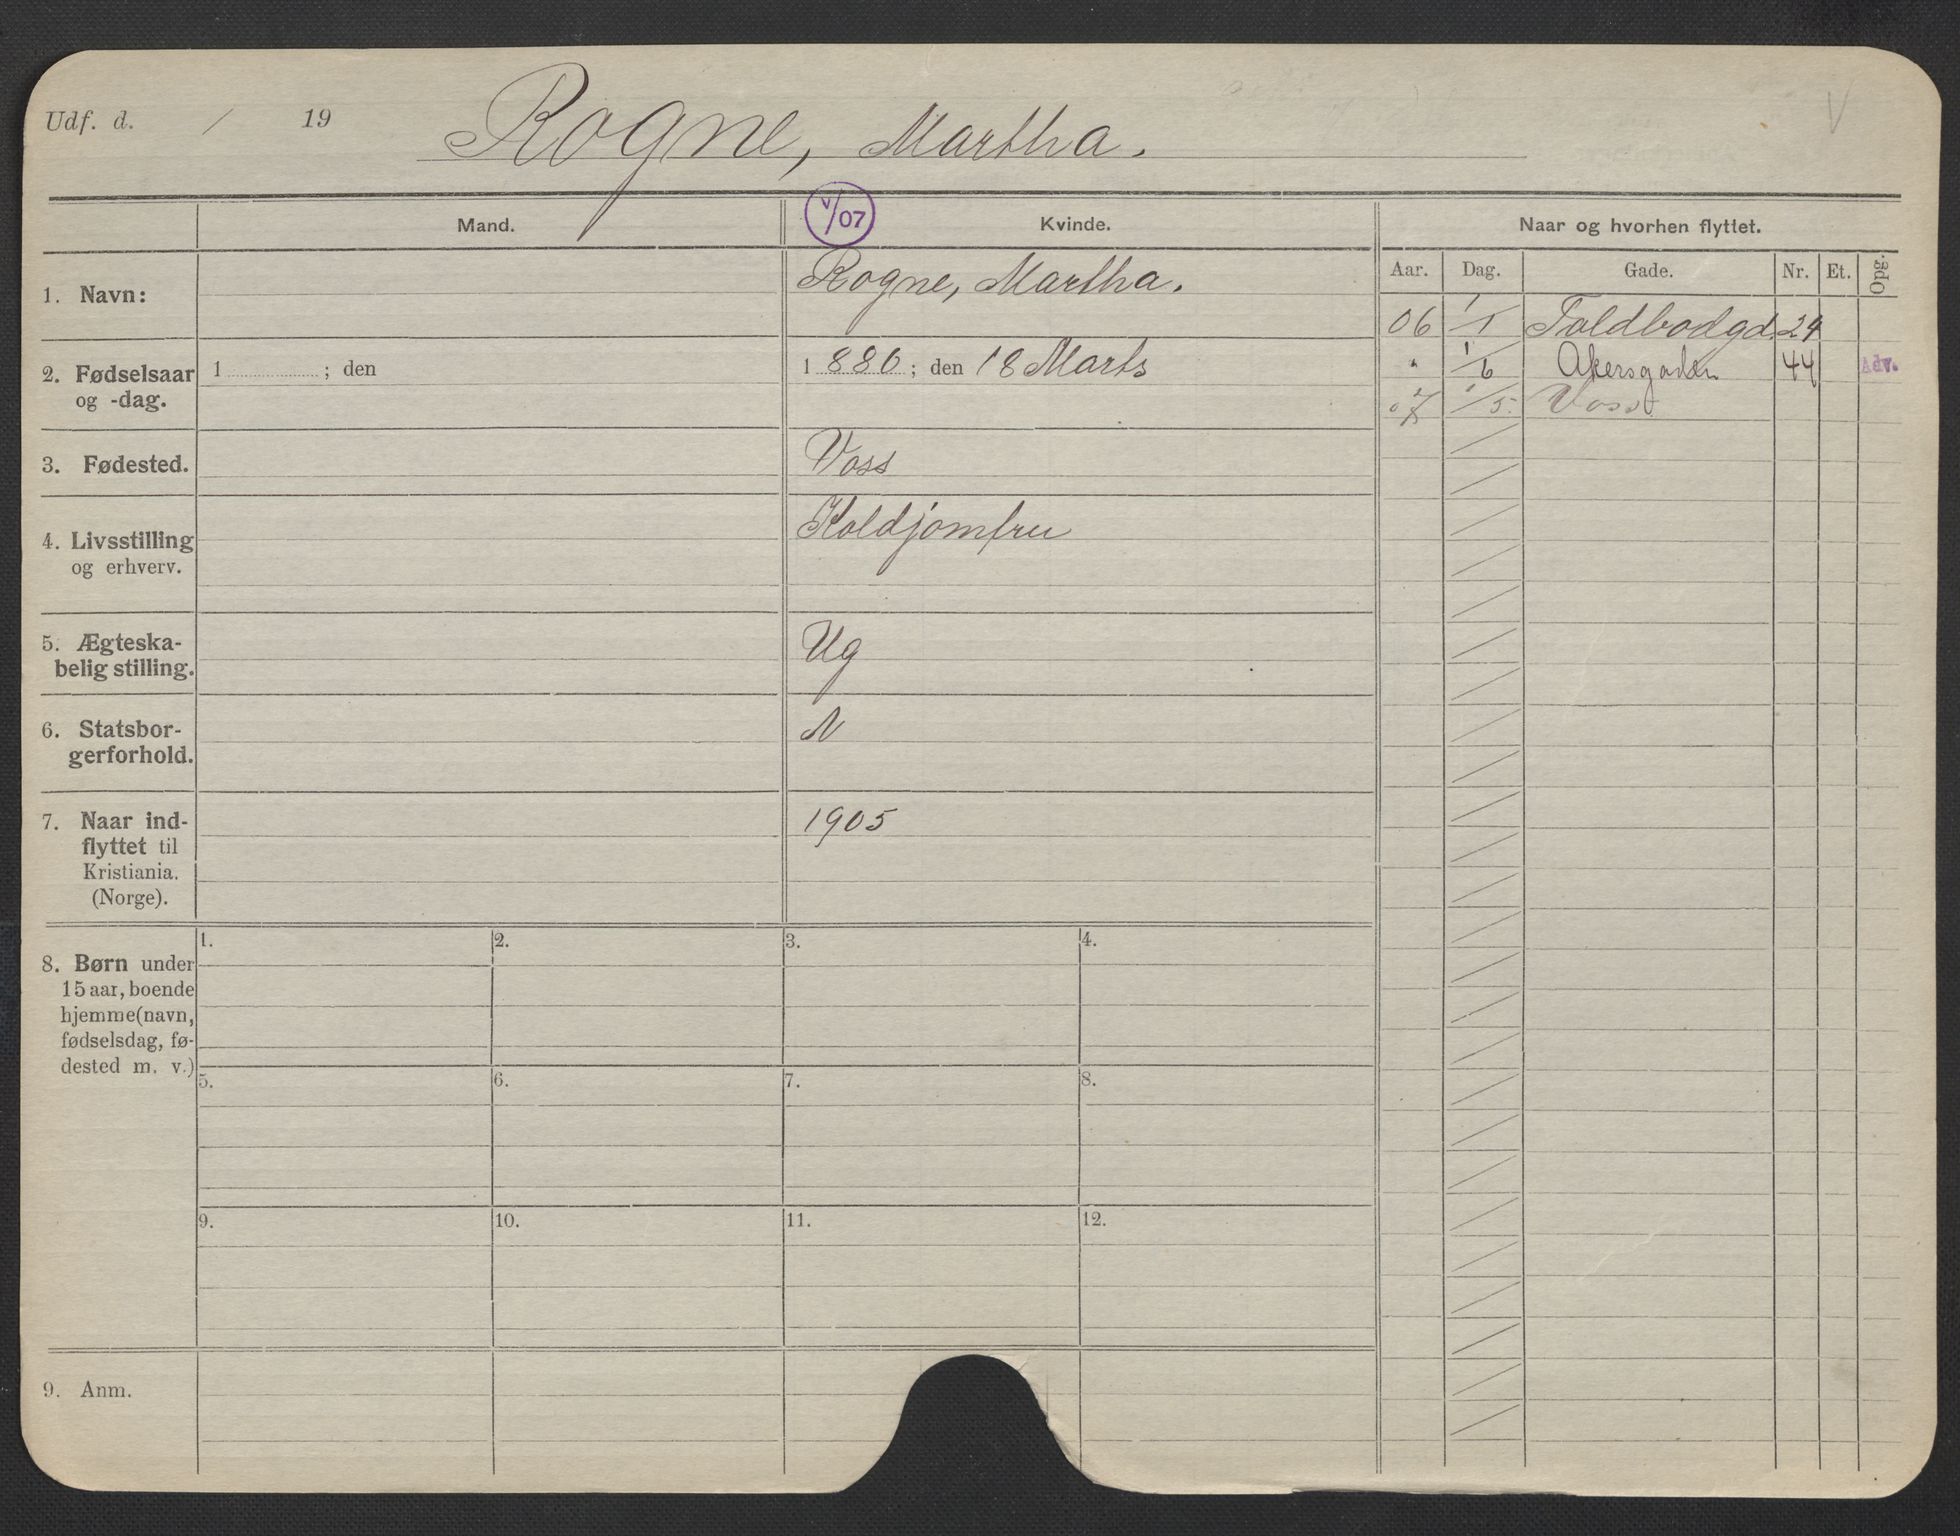 Udf. d. / 19
Rogne, Martha.
V
Mand.
V/07
Kvinde.
Naar og hvorhen flyttet.
Aar. Dag. Gade. Nr. Et. Opg.
1. Navn:
Rogne, Martha.
2. Fødselsaar
og -dag.
1 ; den
1 880 ; den 18 Marts
3. Fødested.
Voss
4. Livsstilling
og erhverv.
Koldjomfru
5. Ægteska-
belig stilling.
Ug
6. Statsbor-
gerforhold.
N
7. Naar ind-
flyttet til
Kristiania.
(Norge).
1905
06 1/1 Toldbodgd. 24
" 1/6 Akersgaden 44 Adv.
07 1/5. Voss
8. Børn under
15 aar, boende
hjemme (navn,
fødselsdag, fø-
dested m. v.)
1. 2. 3. 4.
5. 6. 7. 8.
9. 10. 11. 12.
9. Anm.